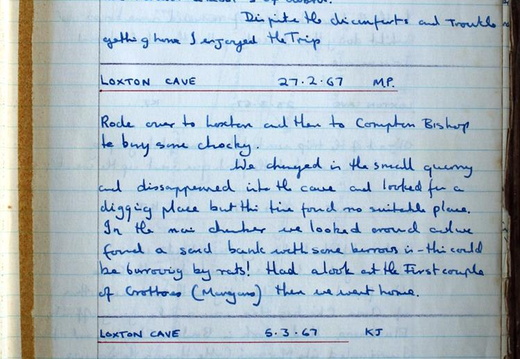 Dispite the discomforts and Trouble
getting home I enjoyed the Trip
LOXTON CAVE 27.2.67 MP.
Rode over to Loxton and then to Compton Bishop
to buy some chocky.
We changed in the small quarry
and dissappeared into the cave and looked for a
digging place but this time found no suitable place.
In the main chamber we looked around and we
found a sand bank with some burrows in - this could
be burrowing by rats! Had a look at the First couple
of Grottoes (Murgus) then we went home.
LOXTON CAVE 5.3.67 KJ